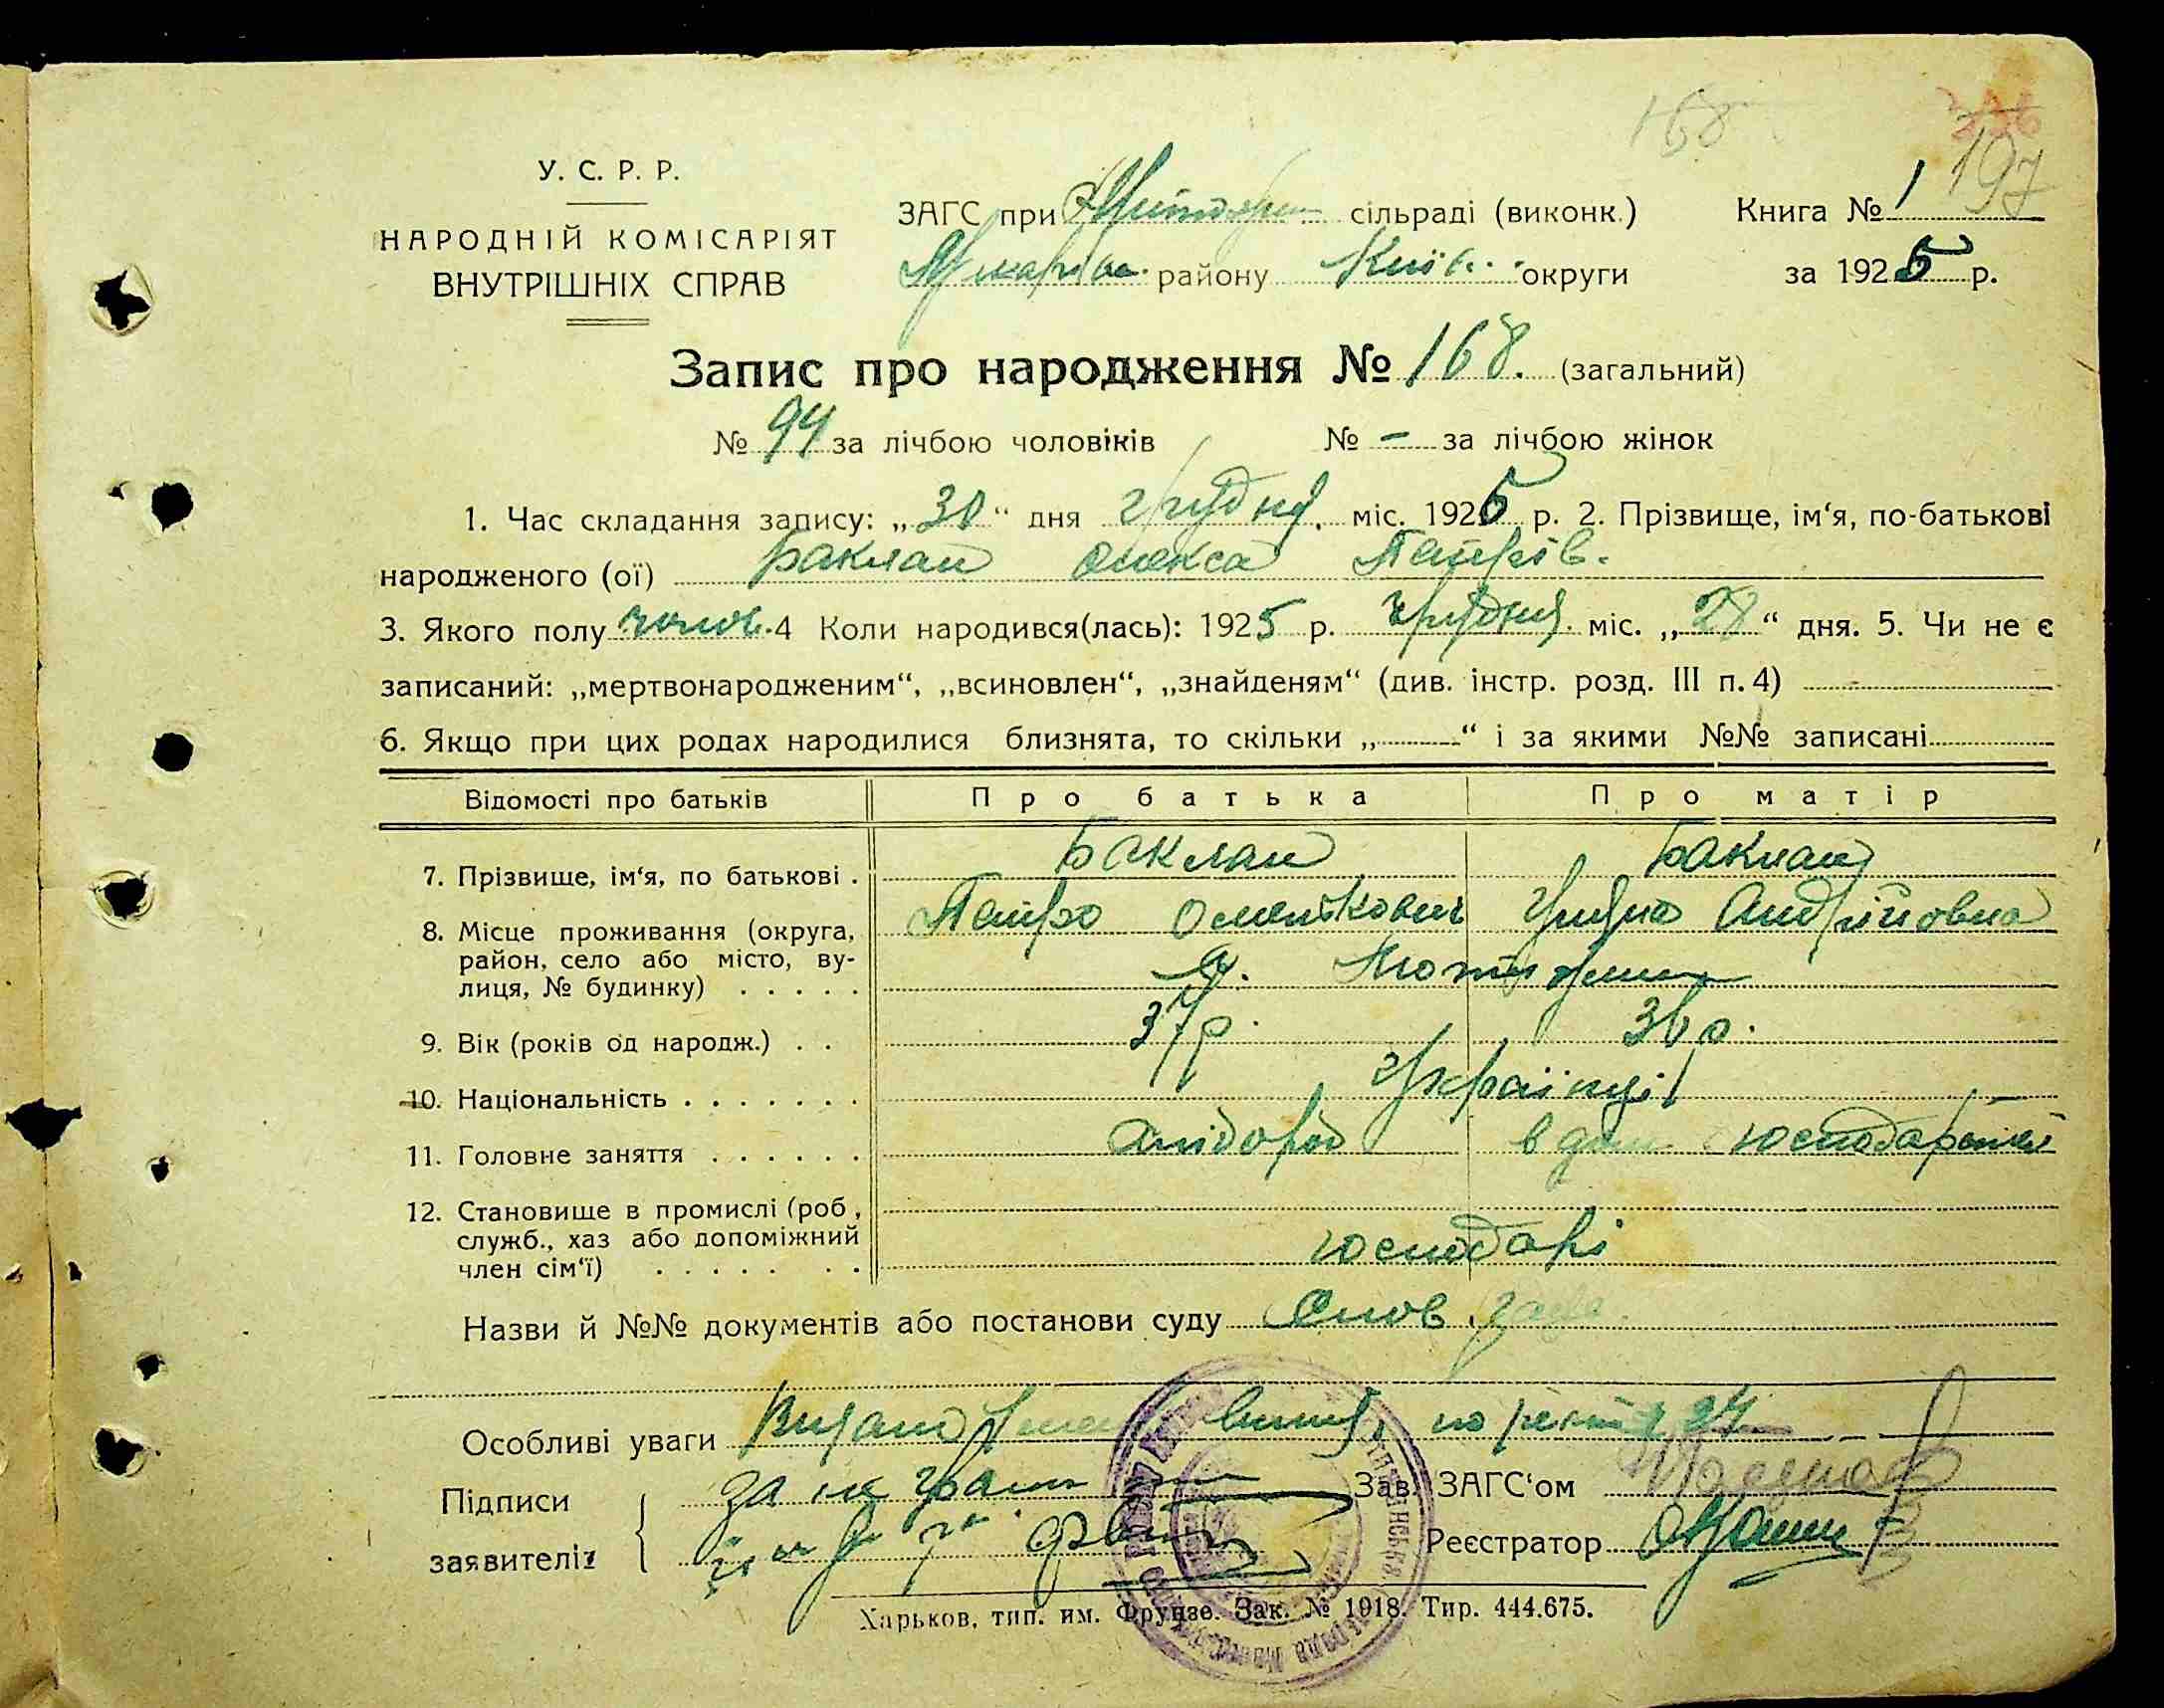 168
197
У. С. Р. Р.
НАРОДНІЙ КОМІСАРІЯТ
ВНУТРІШНІХ СПРАВ
ЗАГС при сільраді (виконк.) Книга № 1
району Київ. округи за 1925 р.
Запис про народження № 168. (загальний)
№ 94 за лічбою чоловіків № – за лічбою жінок
1. Час складання запису: „30“ дня грудня міс. 1925 р. 2. Прізвище, ім‘я, по-батькові
народженого (ої) Баклан Олекса Петрів.
3. Якого полу чолов. 4 Коли народився(лась): 1925 р. грудня міс. „28“ дня. 5. Чи не є
записаний: „мертвонародженим“, „всиновлен“, „знайденям“ (див. інстр. розд. III п. 4)
6. Якщо при цих родах народилися близнята, то скільки „ “ і за якими №№ записані
Відомості про батьків Про батька Про матір
7. Прізвище, ім‘я, по батькові . Баклан Баклан
8. Місце проживання (округа, Петро Андрійовна
район, село або місто, ву-
лиця, № будинку) . . . . .
9. Вік (років од народж.) . . 37 р. 36 р.
10. Національність . . . . . . . Українці
11. Головне заняття . . . . . . хлібороб в дом господарстві
12. Становище в промислі (роб,
служб., хаз або допоміжний господарі
член сім‘ї) . . . . . . .
Назви й №№ документів або постанови суду
Особливі уваги Видано
Підписи за не Зав. ЗАГС‘ом
заявителів Реєстратор
Харьков, тип. им. Фрунзе. Зак. № 1918. Тир. 444.675.